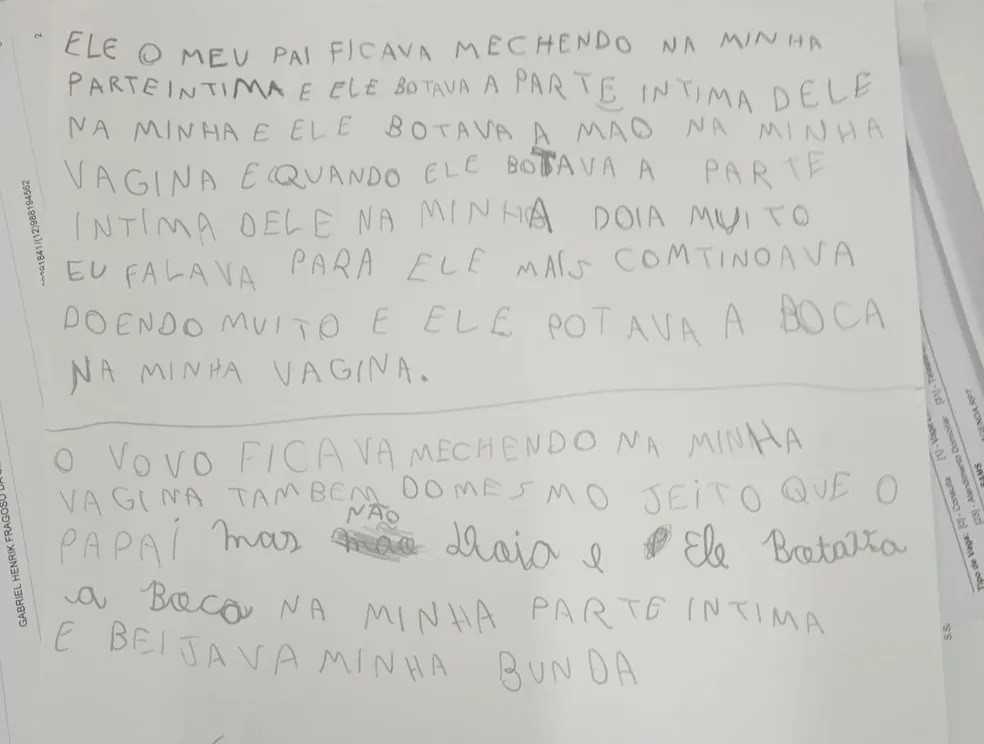 ELE O MEU PAI FICAVA MECHENDO NA MINHA
PARTE INTIMA E ELE BOTAVA A PARTE INTIMA DELE
NA MINHA E ELE BOTAVA A MAO NA MINHA
VAGINA E QUANDO ELE BOTAVA A PARTE
INTIMA DELE NA MINHA DOIA MUITO
EU FALAVA PARA ELE MAIS COMTINOAVA
DOENDO MUITO E ELE POTAVA A BOCA
NA MINHA VAGINA.
O VOVO FICAVA MECHENDO NA MINHA
VAGINA TAMBEM DO MESMO JEITO QUE O
PAPAI mas NÃO dhoia e Ele Botava
a Boca NA MINHA PARTE INTIMA
E BEIJAVA MINHA BUNDA